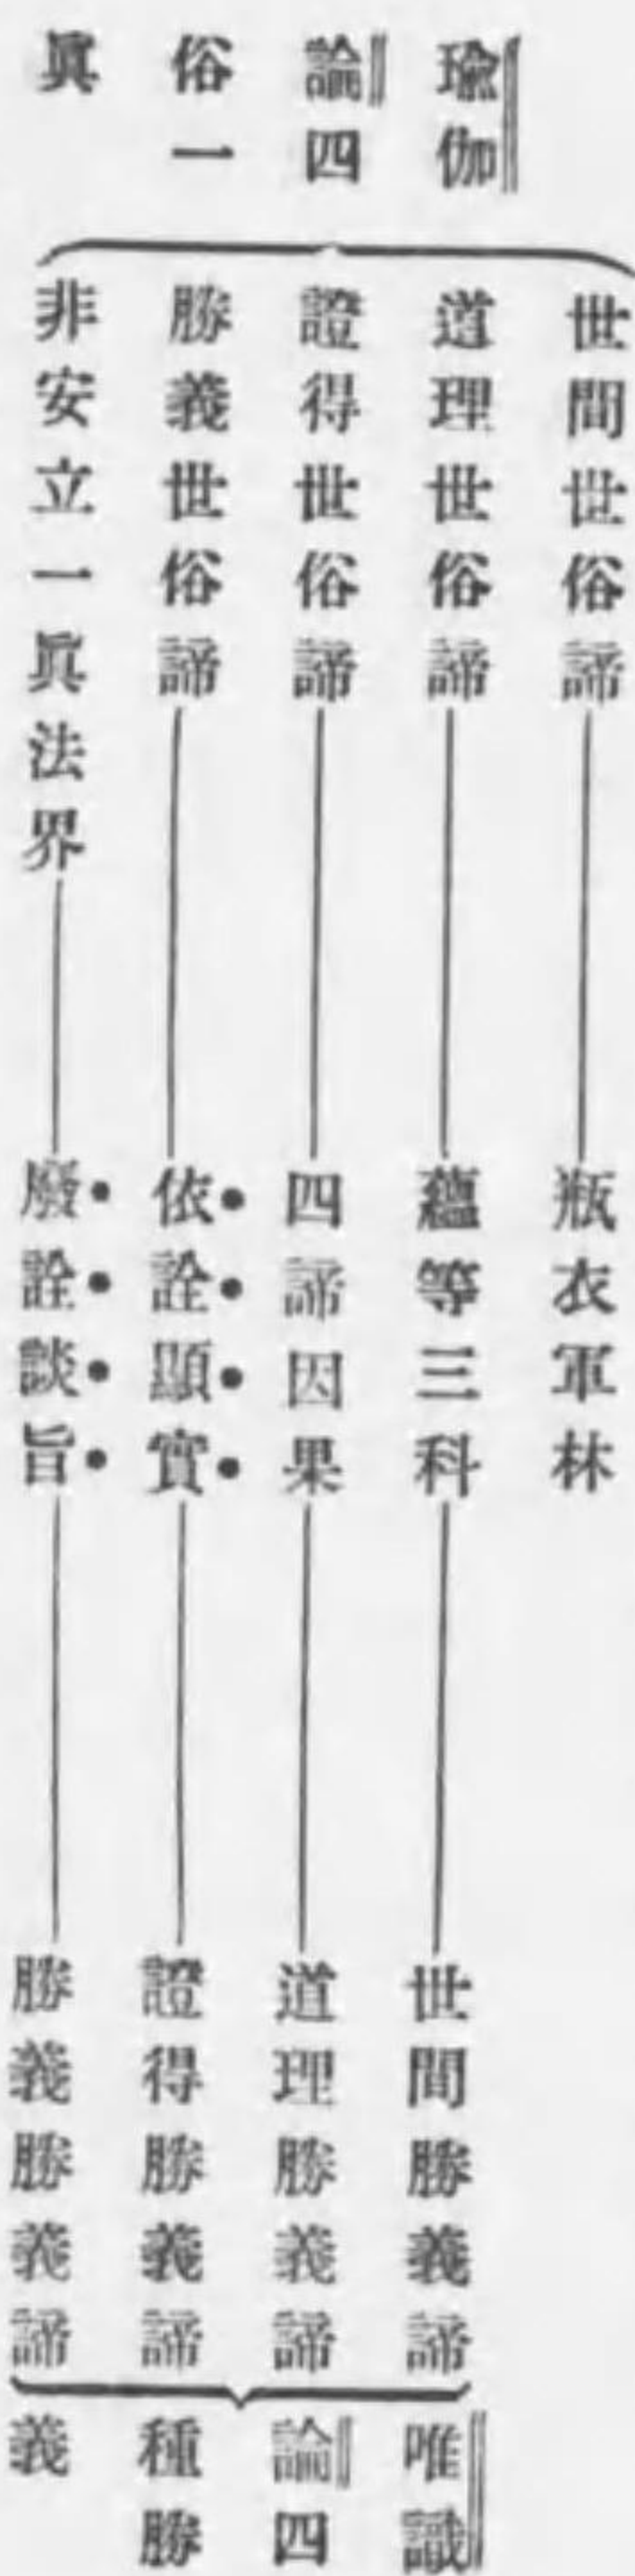 瑜伽
論四
俗一
眞
世間世俗諦
瓶衣軍林
道理世俗諦
蘊等三科
世間勝義諦
證得世俗諦
四諦因果
道理勝義諦
勝義世俗諦
依詮顯實
證得勝義諦
非安立一眞法界
廢詮談旨
勝義勝義諦
唯識
論四
種勝
義